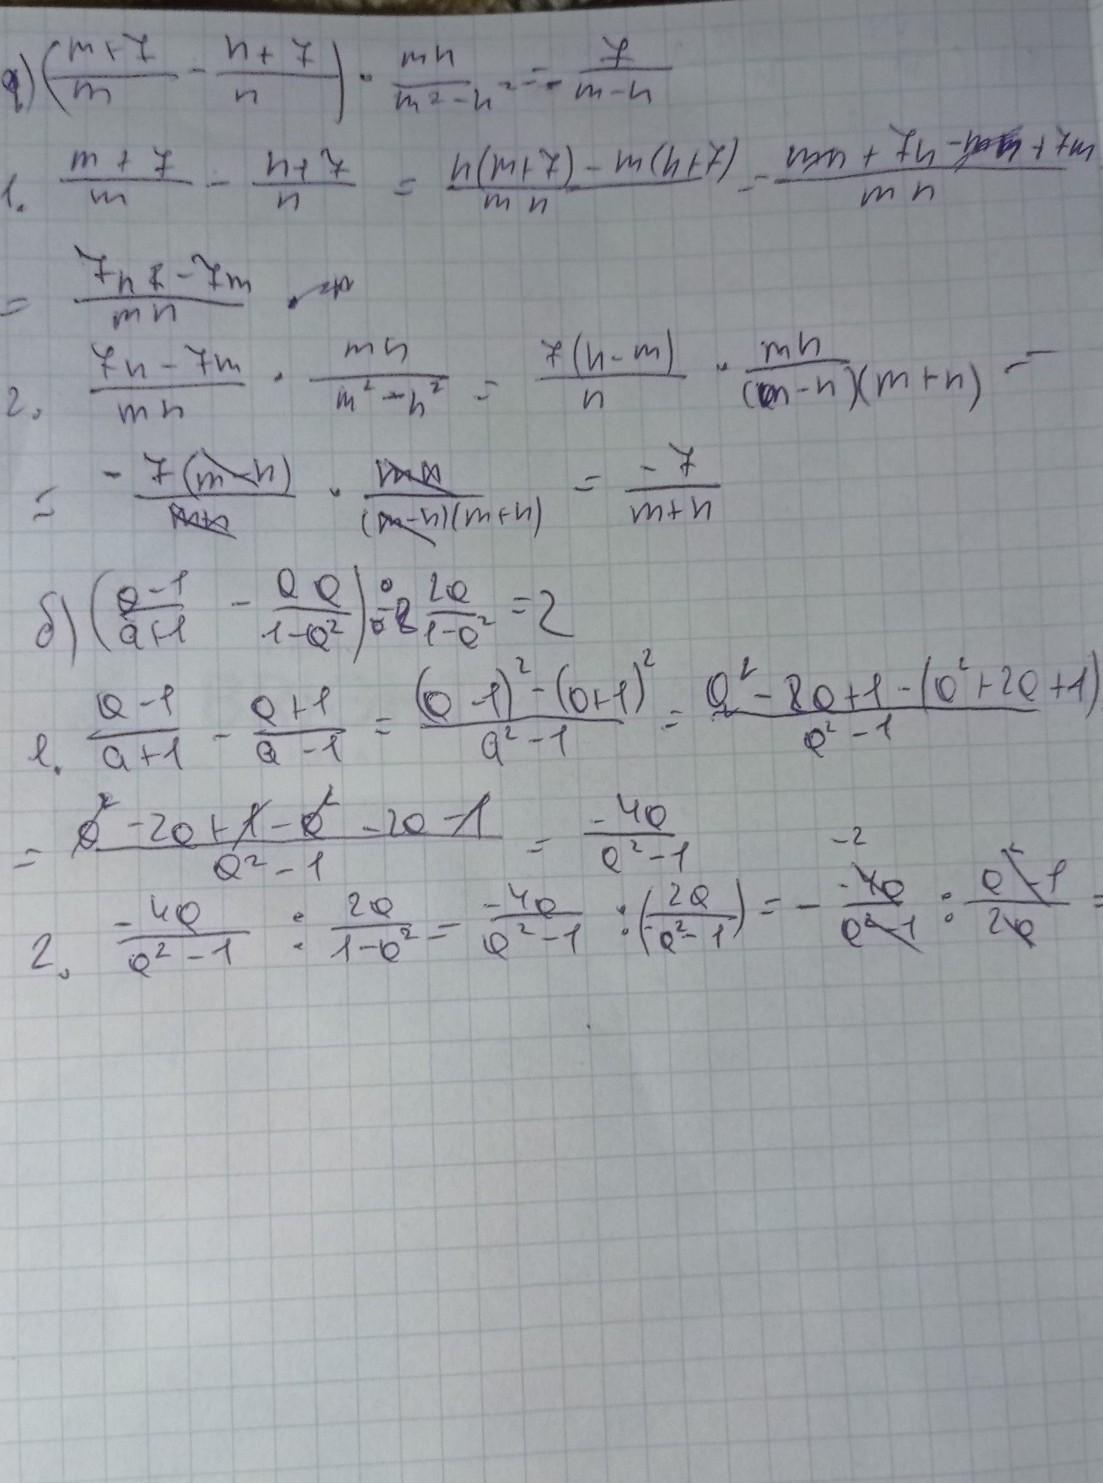 а) ((m+7)/m - (n+7)/n) · mn/(m²-n²) = -7/(m-n)
1. (m+7)/m - (n+7)/n = (n(m+7) - m(n+7))/(mn) = (mn + 7n - nm + 7m)/(mn)
= (7n - 7m)/(mn) ·
2. (7n - 7m)/(mn) · mn/(m²-n²) = 7(n-m)/n · mn/((m-n)(m+n)) =
= -7(m-n)/(mn) · mn/((m-n)(m+n)) = -7/(m+n)
б) ((a-1)/(a+1) - /(1-a²)) : 2a/(1-a²) = 2
1. (a-1)/(a+1) - (a+1)/(a-1) = ((a-1)² - (a+1)²)/(a²-1) = (a² - 2a + 1 - (a² + 2a + 1))/(a²-1)
= (a² - 2a + 1 - a² - 2a - 1)/(a²-1) = -4a/(a²-1)
-2
2. -4a/(a²-1) : 2a/(1-a²) = -4a/(a²-1) : (2a/(-a²-1)) = - -4a/(a²-1) : (a²-1)/(2a) =